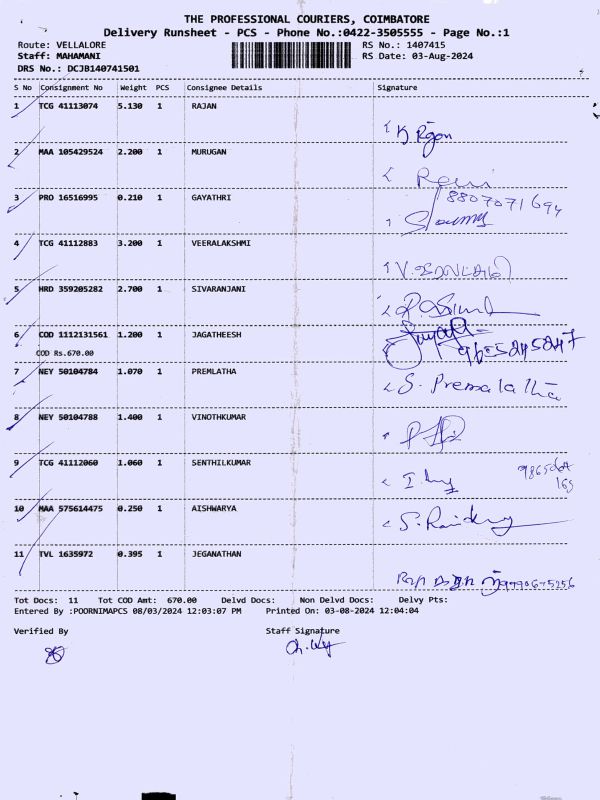 THE PROFESSIONAL COURIERS, COIMBATORE
Delivery Runsheet - PCS - Phone No.:0422-3505555 - Page No.:1
Route: VELLALORE RS No.: 1407415
Staff: MAHAMANI RS Date: 03-Aug-2024
DRS No.: DCJB140741501
S No Consignment No Weight PCS Consignee Details Signature
1 TCG 41113074 5.130 1 RAJAN
2 MAA 105429524 2.200 1 MURUGAN
3 PRO 16516995 0.210 1 GAYATHRI
8807071694
4 TCG 41112883 3.200 1 VEERALAKSHMI
5 HRD 359205282 2.700 1 SIVARANJANI
6 COD 1112131561 1.200 1 JAGATHEESH
COD Rs.670.00
7 NEY 50104784 1.070 1 PREMLATHA
S. Premalatha
8 NEY 50104788 1.400 1 VINOTHKUMAR
9 TCG 41112060 1.060 1 SENTHILKUMAR
10 MAA 575614475 0.250 1 AISHWARYA
11 TVL 1635972 0.395 1 JEGANATHAN
Tot Docs: 11 Tot COD Amt: 670.00 Delvd Docs: Non Delvd Docs: Delvy Pts:
Entered By :POORNIMAPCS 08/03/2024 12:03:07 PM Printed On: 03-08-2024 12:04:04
Verified By Staff Signature